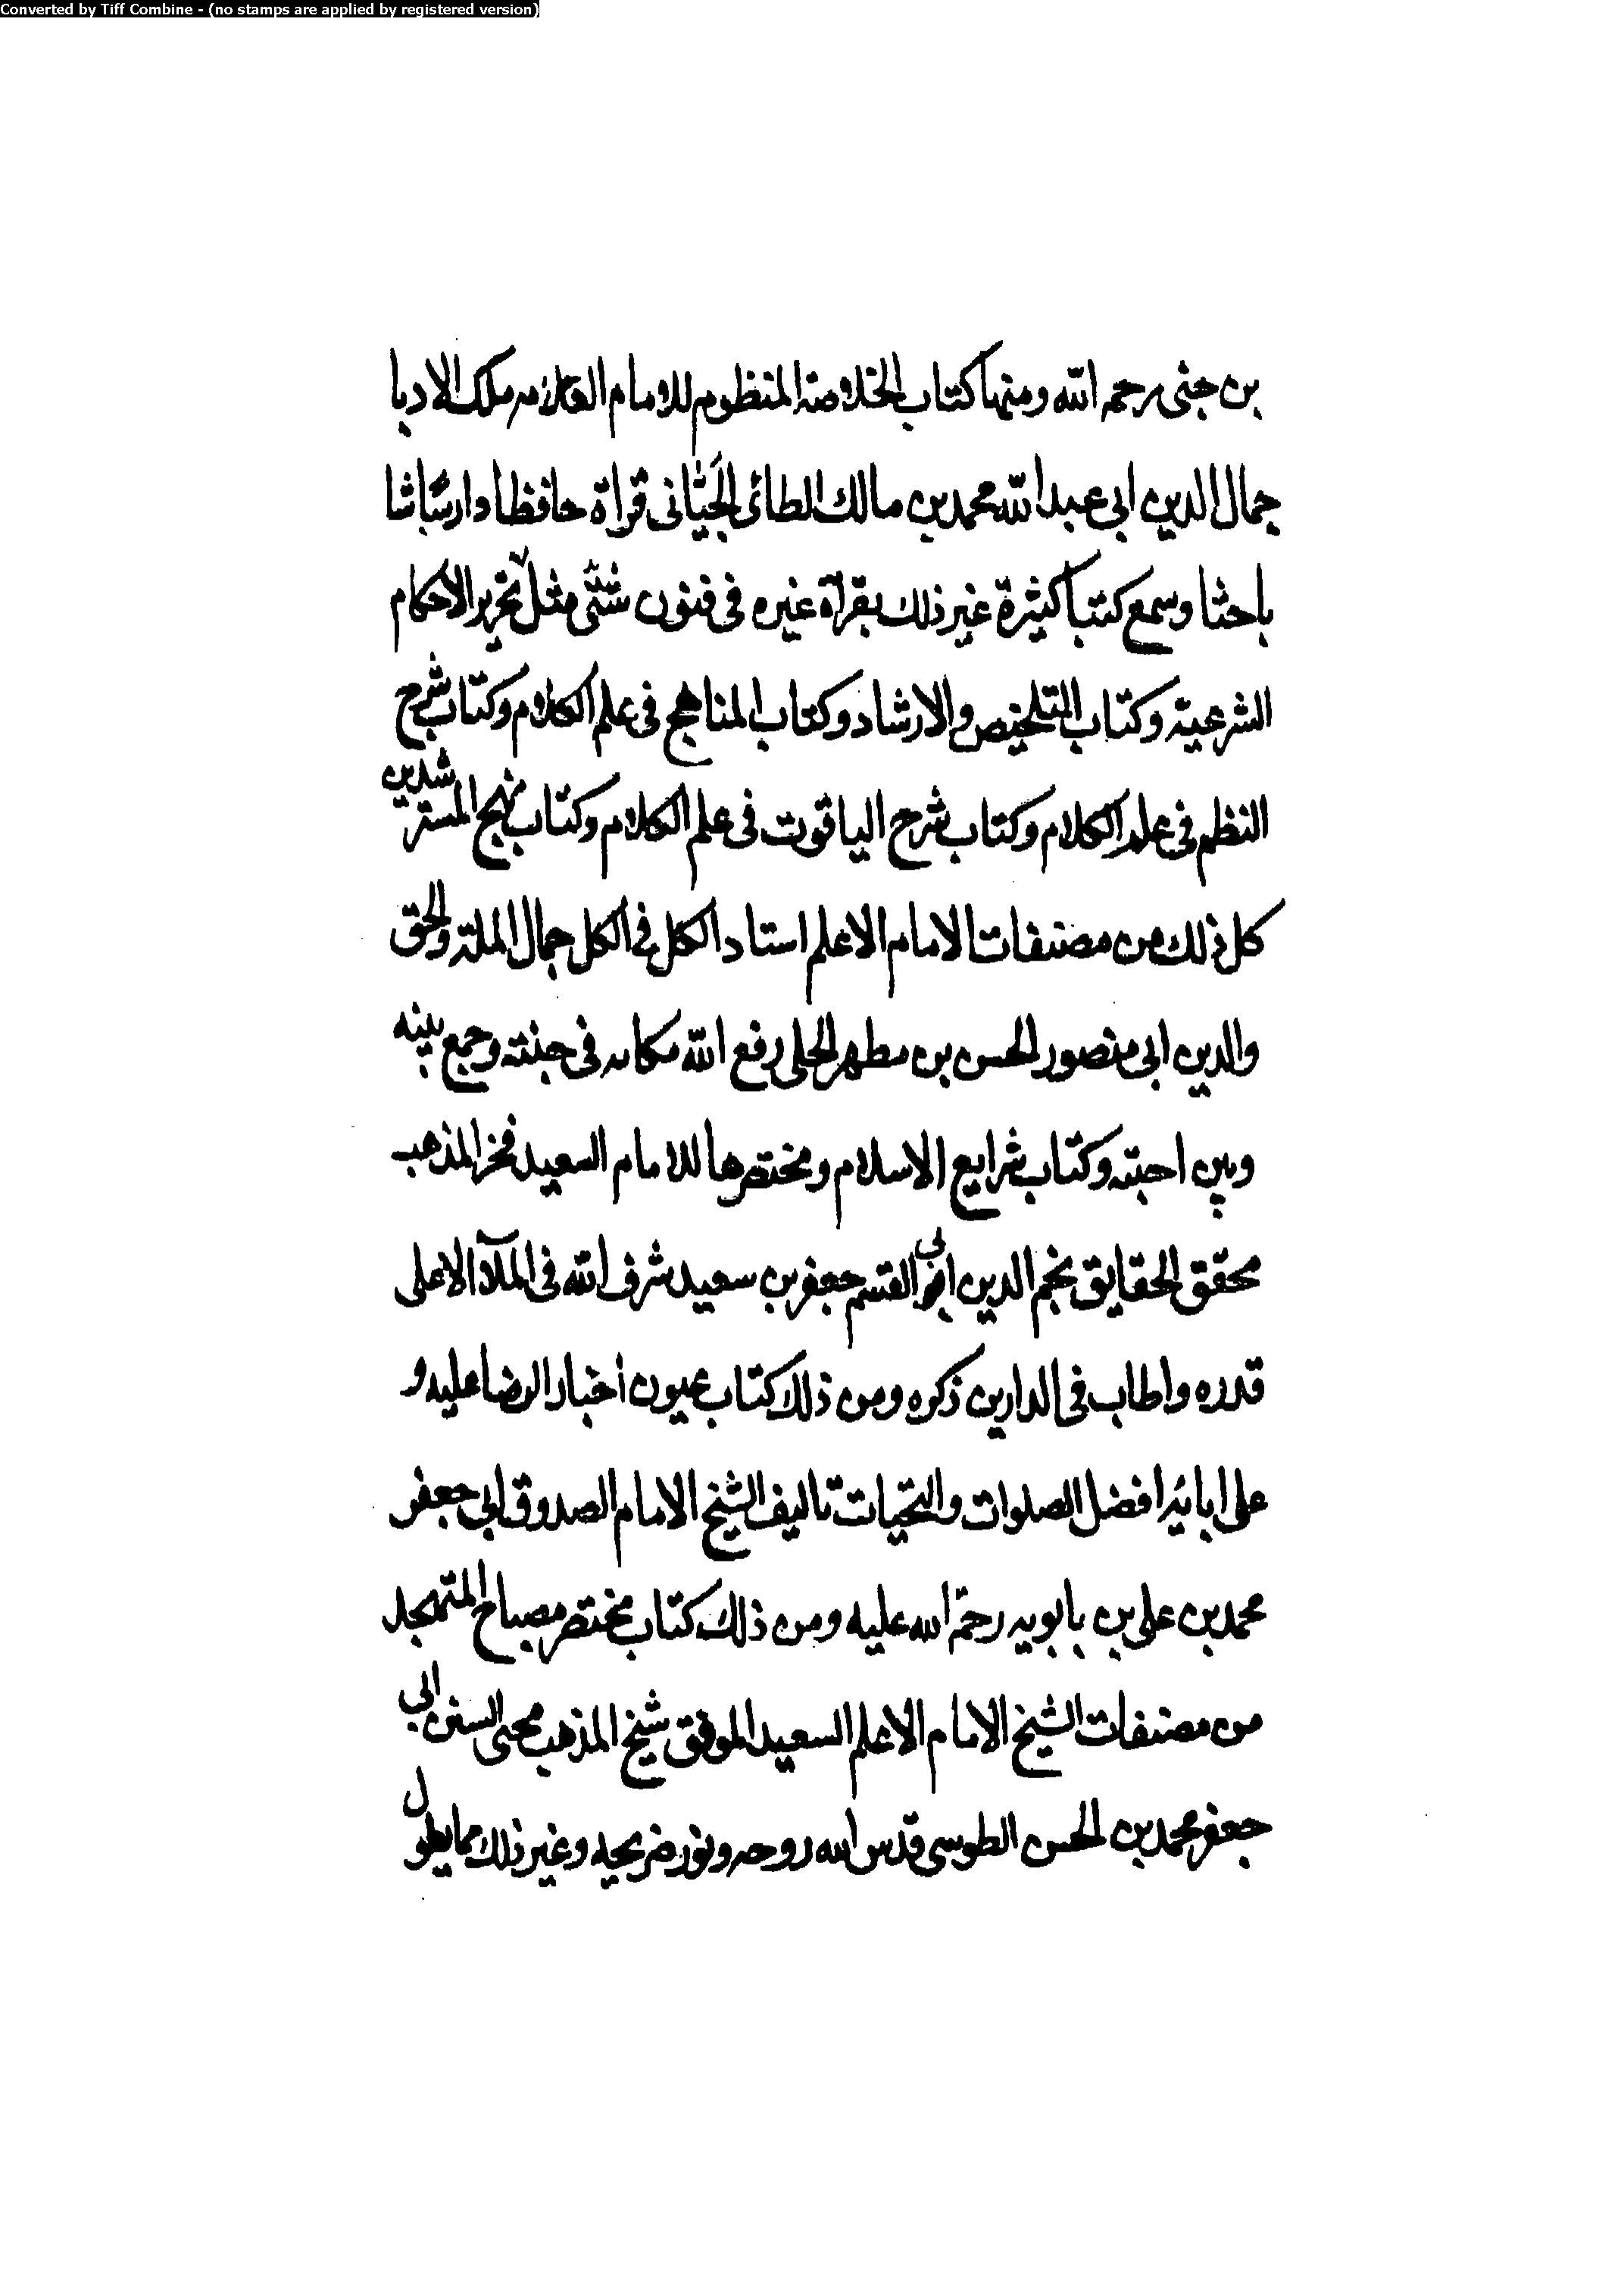 Converted by Tiff Combine - (no stamps are applied by registered version)
بن جنى رحمه الله ومنها كتاب الخلاصة المنظوم للامام العلامه ملك الادبا
جمال الدين ابي عبد الله محمد بن مالك الطائى الجيّانى قراة حافظا دارسًا شا
باحثا وسمع كتبا كثيرة غير ذلك بقرآة غيره فى فنون شتّى مثل تحرير الاحكام
الشرعية وكتاب التلخيص والارشاد وكتاب المناهج فى علم الكلام وكتاب شرح
النظم فى علم الكلام وكتاب شرح الياقوت فى علم الكلام وكتاب نهج المسترشدين
كل ذلك من مصنفات الامام الاعلم استاد الكل فى الكل جمال الملة والحق
والدين ابى منصور الحسن بن مطهر الحلى رفع الله مكانه فى جنته وجمع بينه
وبين احبته وكتاب شرايع الاسلام ومختصرها للامام السعيد فخر المذهب
محقق الحقايق نجم الدين ابي القسم جعفر بن سعيد شرف الله فى الملآ الاعلى
قدره واطاب فى الدارين ذكره ومن ذلك كتاب عيون أخبار الرضا عليه و
على ابائه افضل الصلوات والتحيات تاليف الشيخ الامام الصدوق ابى جعفر
محمد بن على بن بابويه رحمة الله عليه ومن ذلك كتاب مختصر مصباح المتهجد
من مصنفات الشيخ الامام الاعلم السعيد الموفق شيخ المذهب محى السنن ابي
جعفر محمد بن الحسن الطوسى قدس الله روحه ونور ضريحه وغير ذلك مما يطول